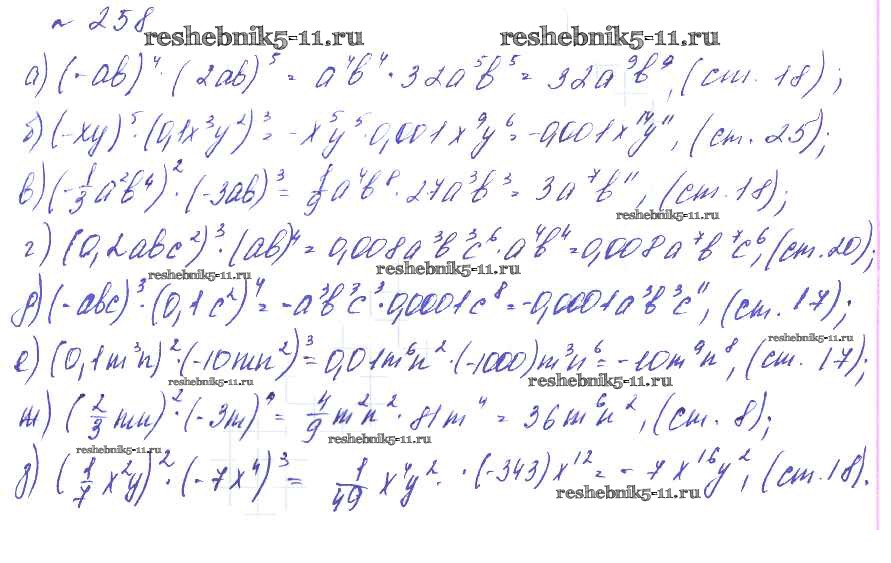 № 258
reshebnik5-11.ru reshebnik5-11.ru
а) (-ab)⁴ · (2ab)⁵ = a⁴b⁴ · 32a⁵b⁵ = 32a⁹b⁹, (ст. 18);
б) (-xy)⁵ · (0,1x³y²)³ = -x⁵y⁵ · 0,001x⁹y⁶ = -0,001x¹⁴y¹¹, (ст. 25);
в) (-1/3 a²b⁴)² · (-3ab)³ = 1/9 a⁴b⁸ · 27a³b³ = 3a⁷b¹¹, (ст. 18);
reshebnik5-11.ru
г) (0,2abc²)³ · (ab)⁴ = 0,008a³b³c⁶ · a⁴b⁴ = 0,008a⁷b⁷c⁶, (ст. 20);
reshebnik5-11.ru reshebnik5-11.ru
д) (-abc)³ · (0,1c²)⁴ = -a³b³c³ · 0,0001c⁸ = -0,0001a³b³c¹¹, (ст. 17);
reshebnik5-11.ru
е) (0,1m³n)² · (-10mn²)³ = 0,01m⁶n² · (-1000)m³n⁶ = -10m⁹n⁸, (ст. 17);
reshebnik5-11.ru reshebnik5-11.ru
ж) (2/3 mn)² · (-3m)⁴ = 4/9 m²n² · 81m⁴ = 36m⁶n², (ст. 8);
reshebnik5-11.ru reshebnik5-11.ru
з) (1/7 x²y)² · (-7x⁴)³ = 1/49 x⁴y² · · (-343)x¹² = -7x¹⁶y², (ст. 18).
reshebnik5-11.ru